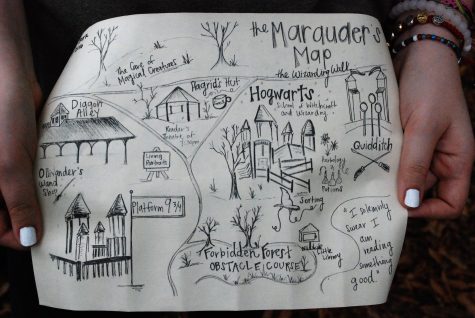 the Marauder's
Map
the Wizarding Walk
The Care of
Magical Creatures
Hagrid's Hut
Reader's
Theatre at
7:30pm
Hogwarts
School of Witchcraft
and Wizardry
Diagon
Alley
Living
Portraits
Ollivander's
Wand
Shop
Platform 9 3/4
Quidditch
Herbology
Sorting
Forbidden Forest
OBSTACLE COURSE
Little
Library
"I solemnly
swear I
am
reading
something
good."